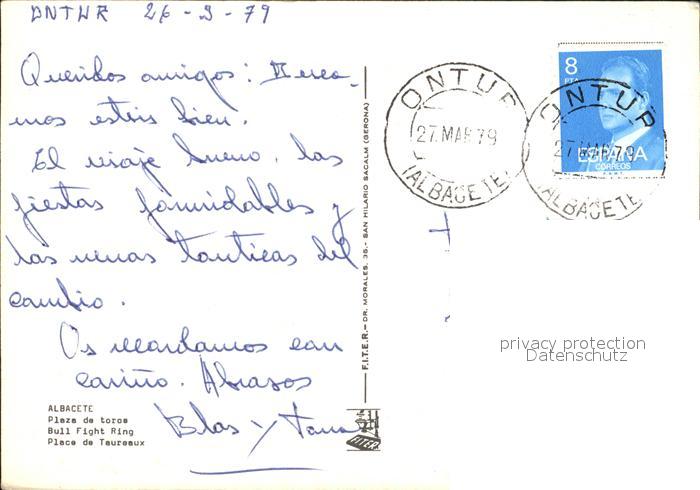 ONTUR 26-3-79
Queridos amigos: Deseamos
estéis bien.
El viaje bueno, las
fiestas formidables y
las nenas contentas del
cambio.
Os recordamos con
cariño. Abrazos
Blas y
ALBACETE
Plaza de toros
Bull Fight Ring
Place de Taureaux
F.I.T.E.R.-DR. MORALES, 35.- SAN HILARIO SACALM (GERONA)
ONTUR
27.MAR.79
(ALBACETE)
ONTUR
27.MAR.79
(ALBACETE)
8
PTA
ESPAÑA
CORREOS
privacy protection
Datenschutz